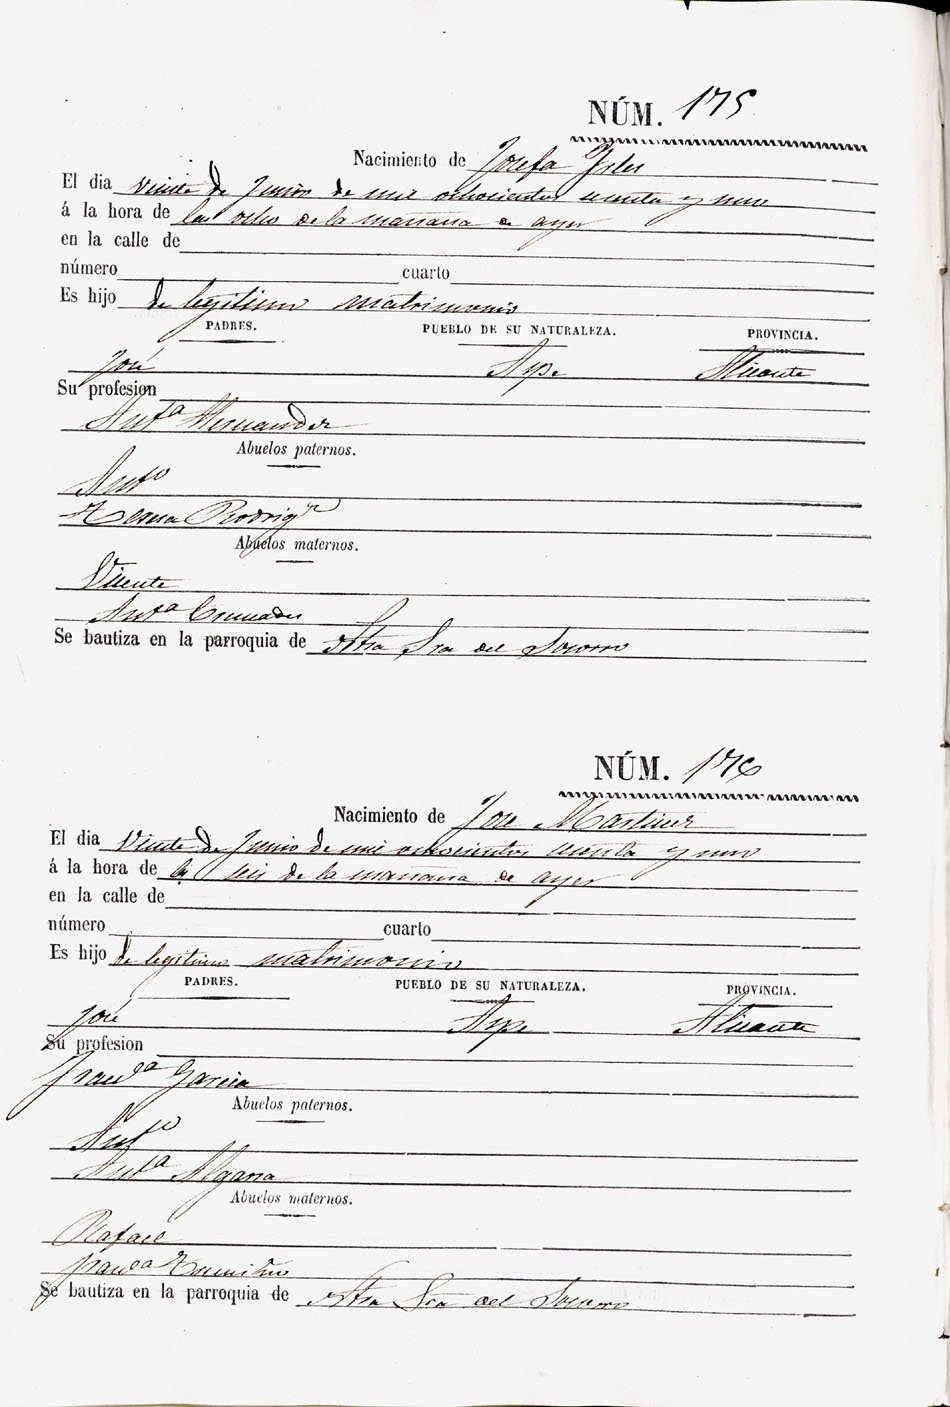 NÚM. 175
Nacimiento de Josefa Yrles
El dia veinte de Junio de mil ochocientos sesenta y uno
á la hora de las ocho de la mañana de ayer
en la calle de
número cuarto
Es hijo de legitimo matrimonio
PADRES. PUEBLO DE SU NATURALEZA. PROVINCIA.
José Aspe Alicante
Su profesion
Antª Hernandez
Abuelos paternos.
Antº
Teresa Rodrigz
Abuelos maternos.
Vicente
Antª Cremades
Se bautiza en la parroquia de Ntra Sra del Socorro
NÚM. 176
Nacimiento de Jose Martinez
El dia Veinte de Junio de mil ochocientos sesenta y uno
á la hora de las seis de la mañana de ayer
en la calle de
número cuarto
Es hijo de legitimo matrimonio
PADRES. PUEBLO DE SU NATURALEZA. PROVINCIA.
José Aspe Alicante
Su profesion
Francª Garcia
Abuelos paternos.
Antº
Antª Algarra
Abuelos maternos.
Rafael
Francª
Se bautiza en la parroquia de Ntra Sra del Socorro